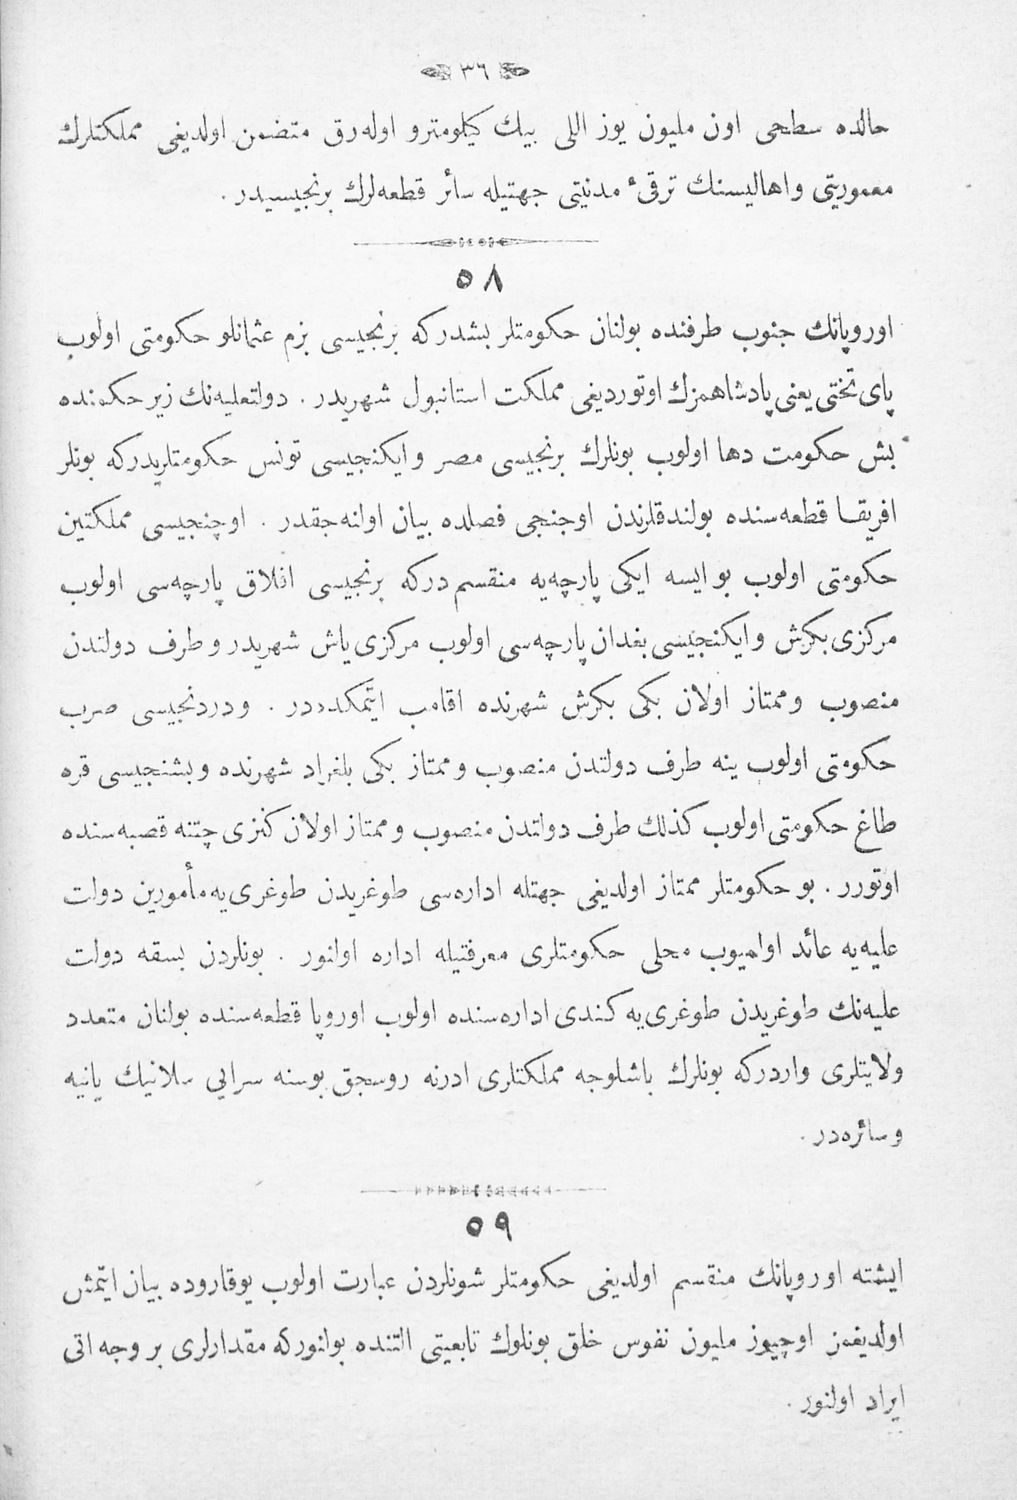 ٣٦
حالده سطحی اون ملیون یوز اللی بیك کیلومترو اوله‌رق متضمن اولدیغی مملکتلرك
معموریتی و اهالیسنك ترقیٔ مدنیتی جهتیله سائر قطعه‌لرك برنجیسیدر .
٥٨
اوروپانك جنوب طرفنده بولنان حکومتلر بشدرکه برنجیسی بزم عثمانلو حکومتی اولوب
پای تختی یعنی پادشاهمزك اوتوردیغی مملکت استانبول شهریدر . دولتعلیه‌نك زیر حکمنده
بش حکومت دها اولوب بونلرك برنجیسی مصر و ایکنجیسی تونس حکومتلریدرکه بونلر
افریقا قطعه‌سنده بولندقلرندن اوجنجی فصلده بیان اولنه‌جقدر . اوچنجیسی مملکتین
حکومتی اولوب بو ایسه ایکی پارچه‌یه منقسم درکه برنجیسی افلاق پارچه‌سی اولوب
مرکزی بکرش و ایکنجیسی بغدان پارچه‌سی اولوب مرکزی یاش شهریدر و طرف دولتدن
منصوب و ممتاز اولان بکی بکرش شهرنده اقامت ایتمکده‌در . و دردنجیسی صرب
حکومتی اولوب ینه طرف دولتدن منصوب و ممتاز بکی بلغراد شهرنده و بشنجیسی قره
طاغ حکومتی اولوب کذلك طرف دولتدن منصوب و ممتاز اولان کنزی چتنه قصبه‌سنده
اوتورر . بو حکومتلر ممتاز اولدیغی جهتله اداره‌سی طوغریدن طوغری‌یه مأمورین دولت
علیه‌یه عائد اولمیوب محلی حکومتلری معرفتیله اداره اولنور . بونلردن بسقه دولت
علیه‌نك طوغریدن طوغری‌یه کندی اداره‌سنده اولوب اوروپا قطعه‌سنده بولنان متعدد
ولایتلری واردرکه بونلرك باشلوجه مملکتلری ادرنه روسجق بوسنه سرایی سلانیك یانیه
و سائره‌در .
٥٩
ایشته اوروپانك منقسم اولدیغی حکومتلر شونلردن عبارت اولوب یوقاروده بیان ایتمش
اولدیغمز اوچیوز ملیون نفوس خلق بونلوك تابعیتی التنده بولنورکه مقدارلری بر وجه اتی
ایراد اولنور .